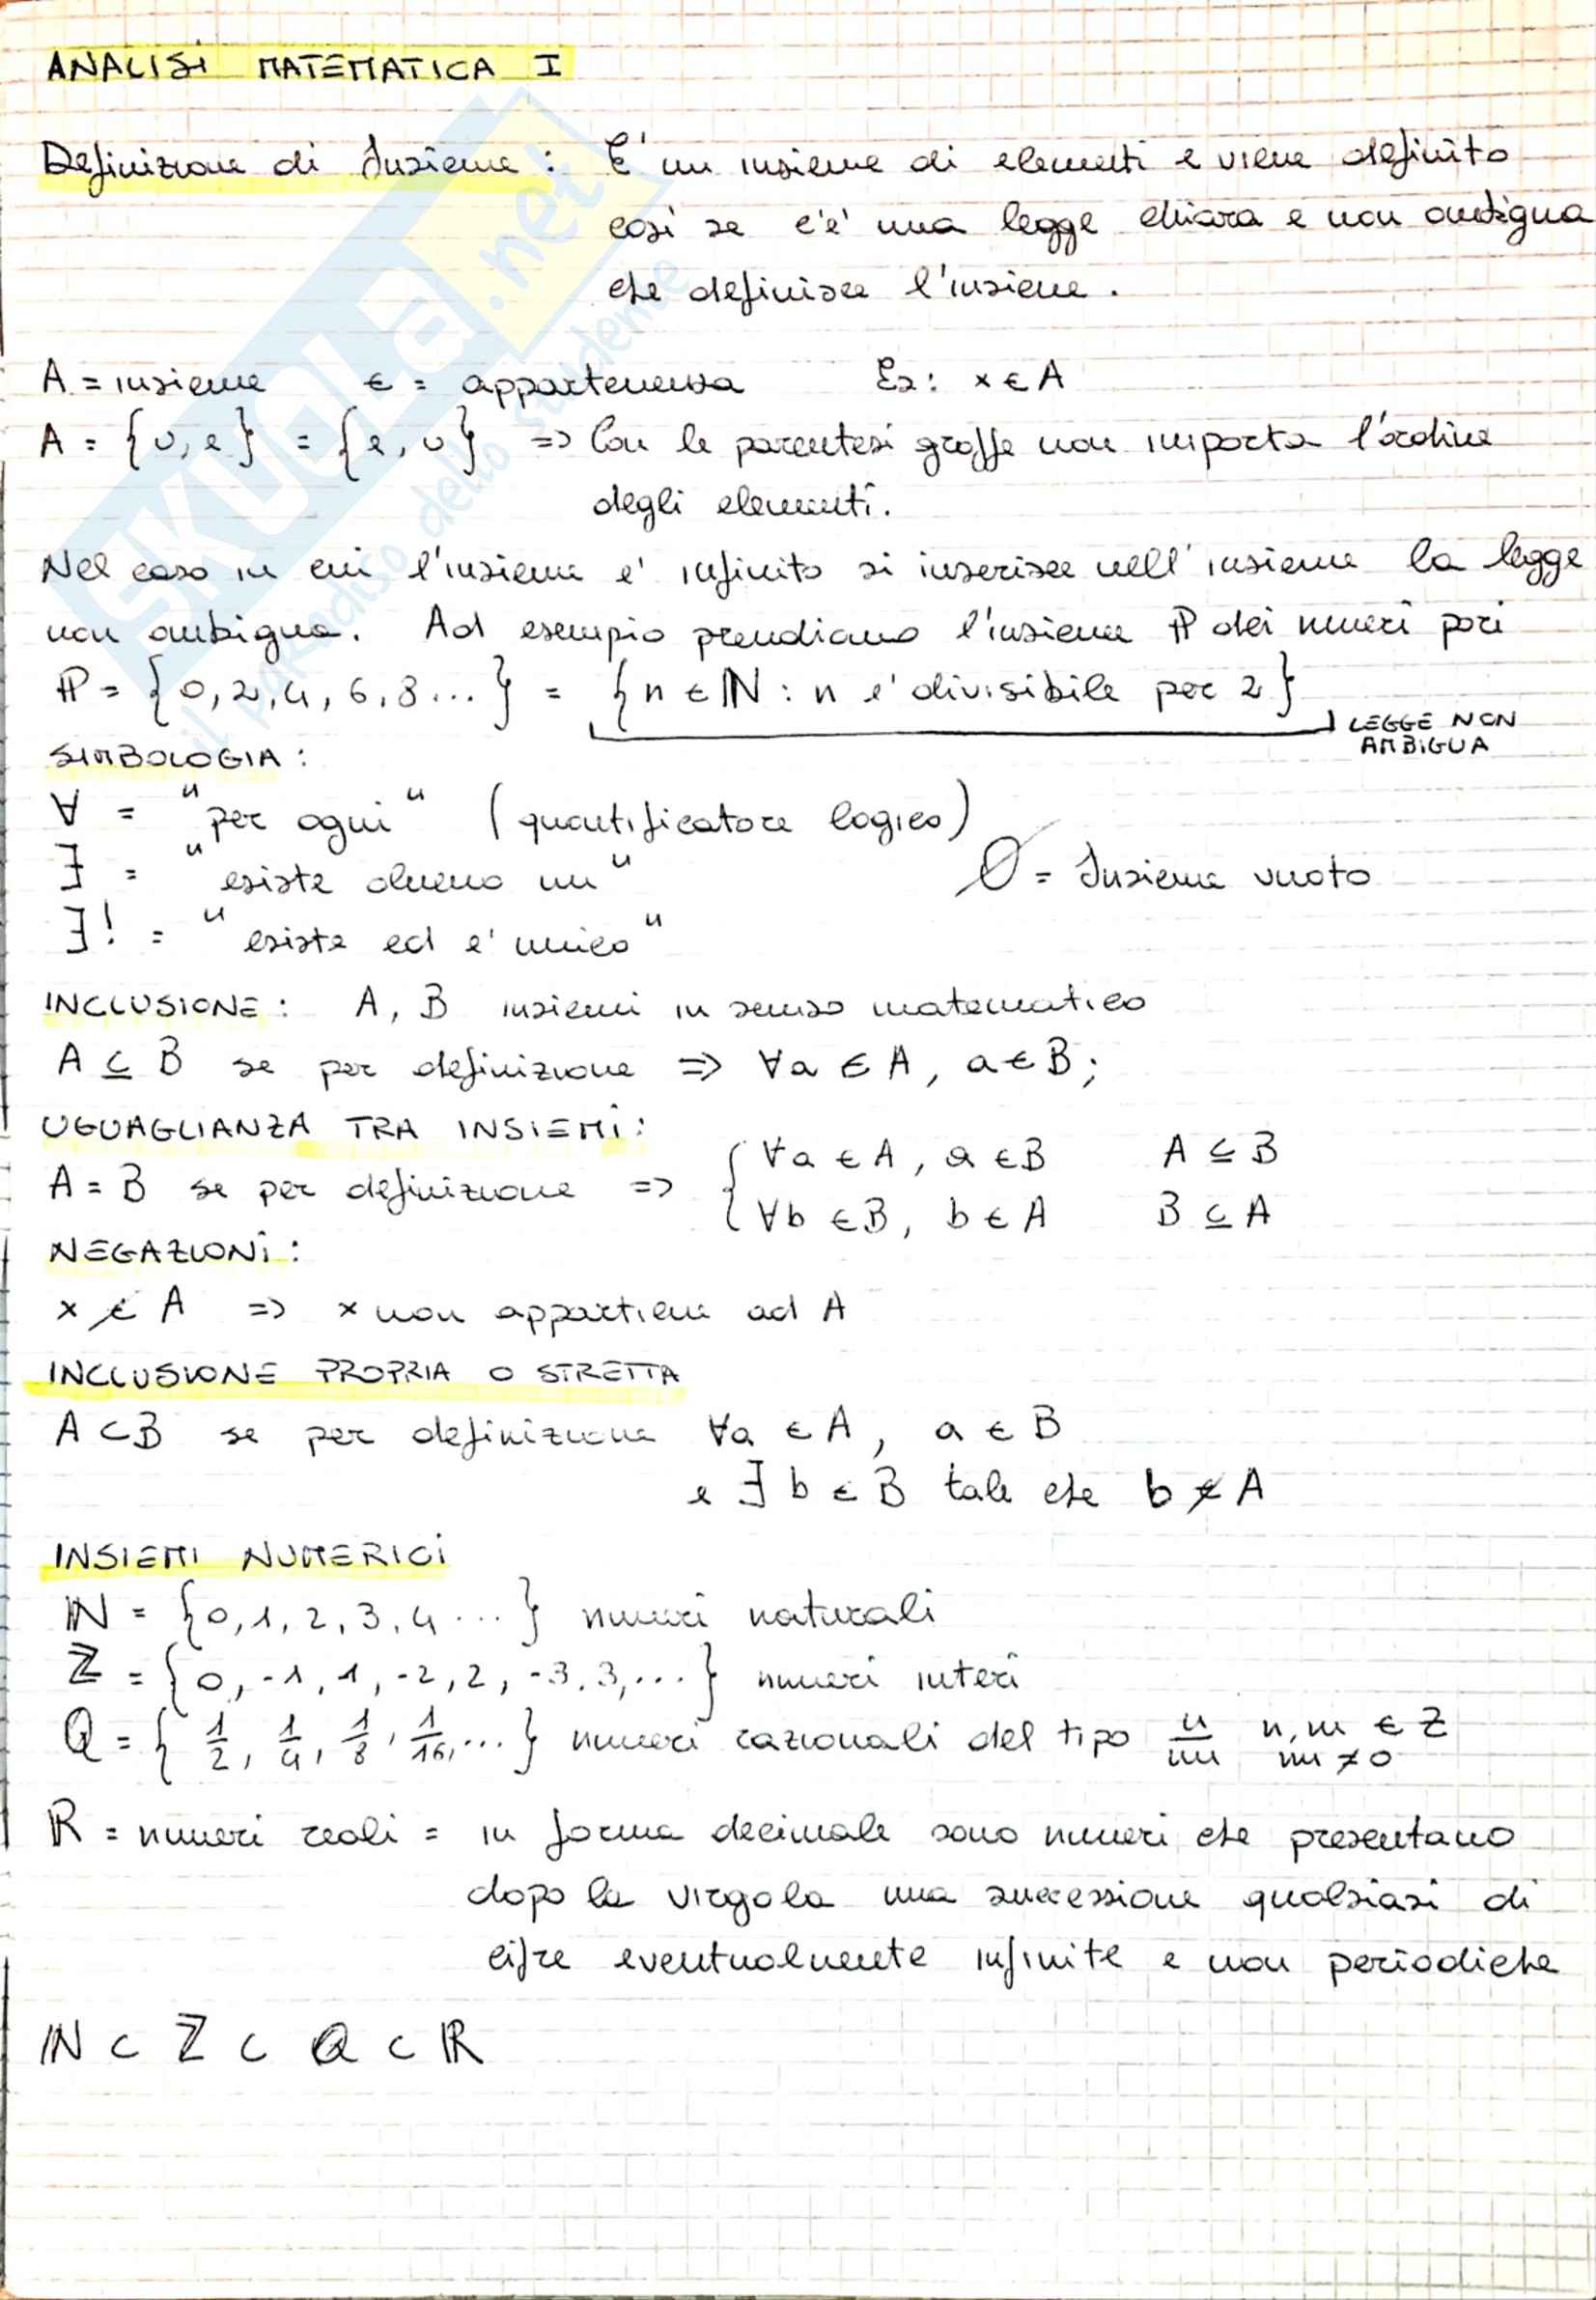 ANALISI MATEMATICA I
Definizione di Insieme : E' un insieme di elementi e viene definito
così se c'è una legge chiara e non ambigua
che definisce l'insieme .
A = insieme ∈ = appartenenza Es: x ∈ A
A = {v, e} = {e, v} => Con le parentesi graffe non importa l'ordine
degli elementi.
Nel caso in cui l'insieme e' infinito si inserisce nell' insieme la legge
non ambigua. Ad esempio prendiamo l'insieme ℙ dei numeri pari
ℙ = {0, 2, 4, 6, 8 ... } = {n ∈ ℕ : n e' divisibile per 2}
LEGGE NON
AMBIGUA
SIMBOLOGIA :
∀ = "per ogni" (quantificatore logico)
∃ = "esiste almeno un"
∅ = Insieme vuoto
∃! = "esiste ed e' unico"
INCLUSIONE : A, B insiemi in senso matematico
A ⊆ B se per definizione => ∀a ∈ A, a ∈ B;
UGUAGLIANZA TRA INSIEMI :
A = B se per definizione => { ∀a ∈ A, a ∈ B A ⊆ B
∀b ∈ B, b ∈ A B ⊆ A
NEGAZIONI :
x ∉ A => x non appartiene ad A
INCLUSIONE PROPRIA O STRETTA
A ⊂ B se per definizione ∀a ∈ A, a ∈ B
e ∃ b ∈ B tale che b ∉ A
INSIEMI NUMERICI
ℕ = {0, 1, 2, 3, 4 ... } numeri naturali
ℤ = {0, -1, 1, -2, 2, -3, 3, ... } numeri interi
Q = { 1/2, 1/4, 1/8, 1/16, ... } numeri razionali del tipo n/m n, m ∈ Z
m ≠ 0
ℝ = numeri reali = in forma decimale sono numeri che presentano
dopo la virgola una successione qualsiasi di
cifre eventualmente infinite e non periodiche
ℕ ⊂ ℤ ⊂ ℚ ⊂ ℝ
SKUOLA.net
il paradiso dello studente